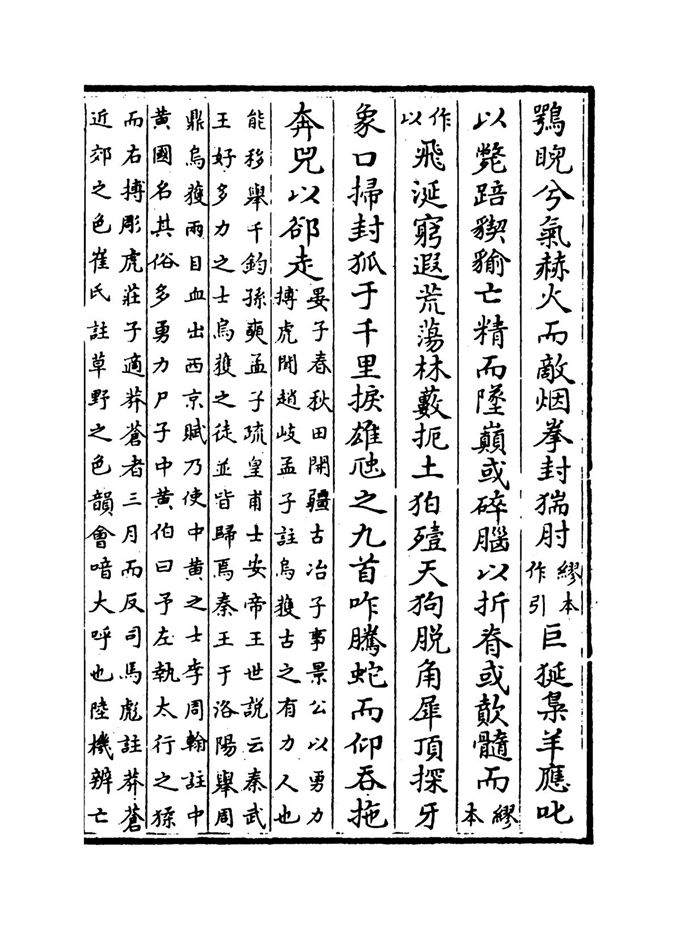 鶚睨兮氣赫火而敵烟拳封㺔肘繆本作引巨狿梟羊應叱
以斃踣猰貐亡精而墜巔或碎腦以折脊或歕髓而繆本
作以飛涎窮遐荒蕩林藪扼土狛殪天狗脱角犀頂探牙
象口掃封狐于千里捩雄虺之九首咋騰蛇而仰吞拖
奔兕以郤走晏子春秋田開疆古冶子事景公以勇力
搏虎聞趙岐孟子註烏獲古之有力人也
能移舉千鈞孫奭孟子疏皇甫士安帝王世説云秦武
王好多力之士烏獲之徒並皆歸焉秦王于洛陽舉周
鼎烏獲兩目血出西京賦乃使中黄之士李周翰註中
黄國名其俗多勇力尸子中黄伯曰予左執太行之猱
而右搏彫虎莊子適莽蒼者三月而反司馬彪註莽蒼
近郊之色崔氏註草野之色韻會喑大呼也陸機辨亡